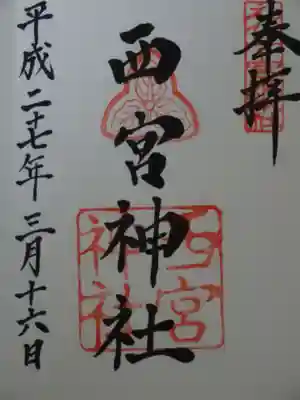 奉拝
西宮神社
西宮神社
平成二十七年三月十六日